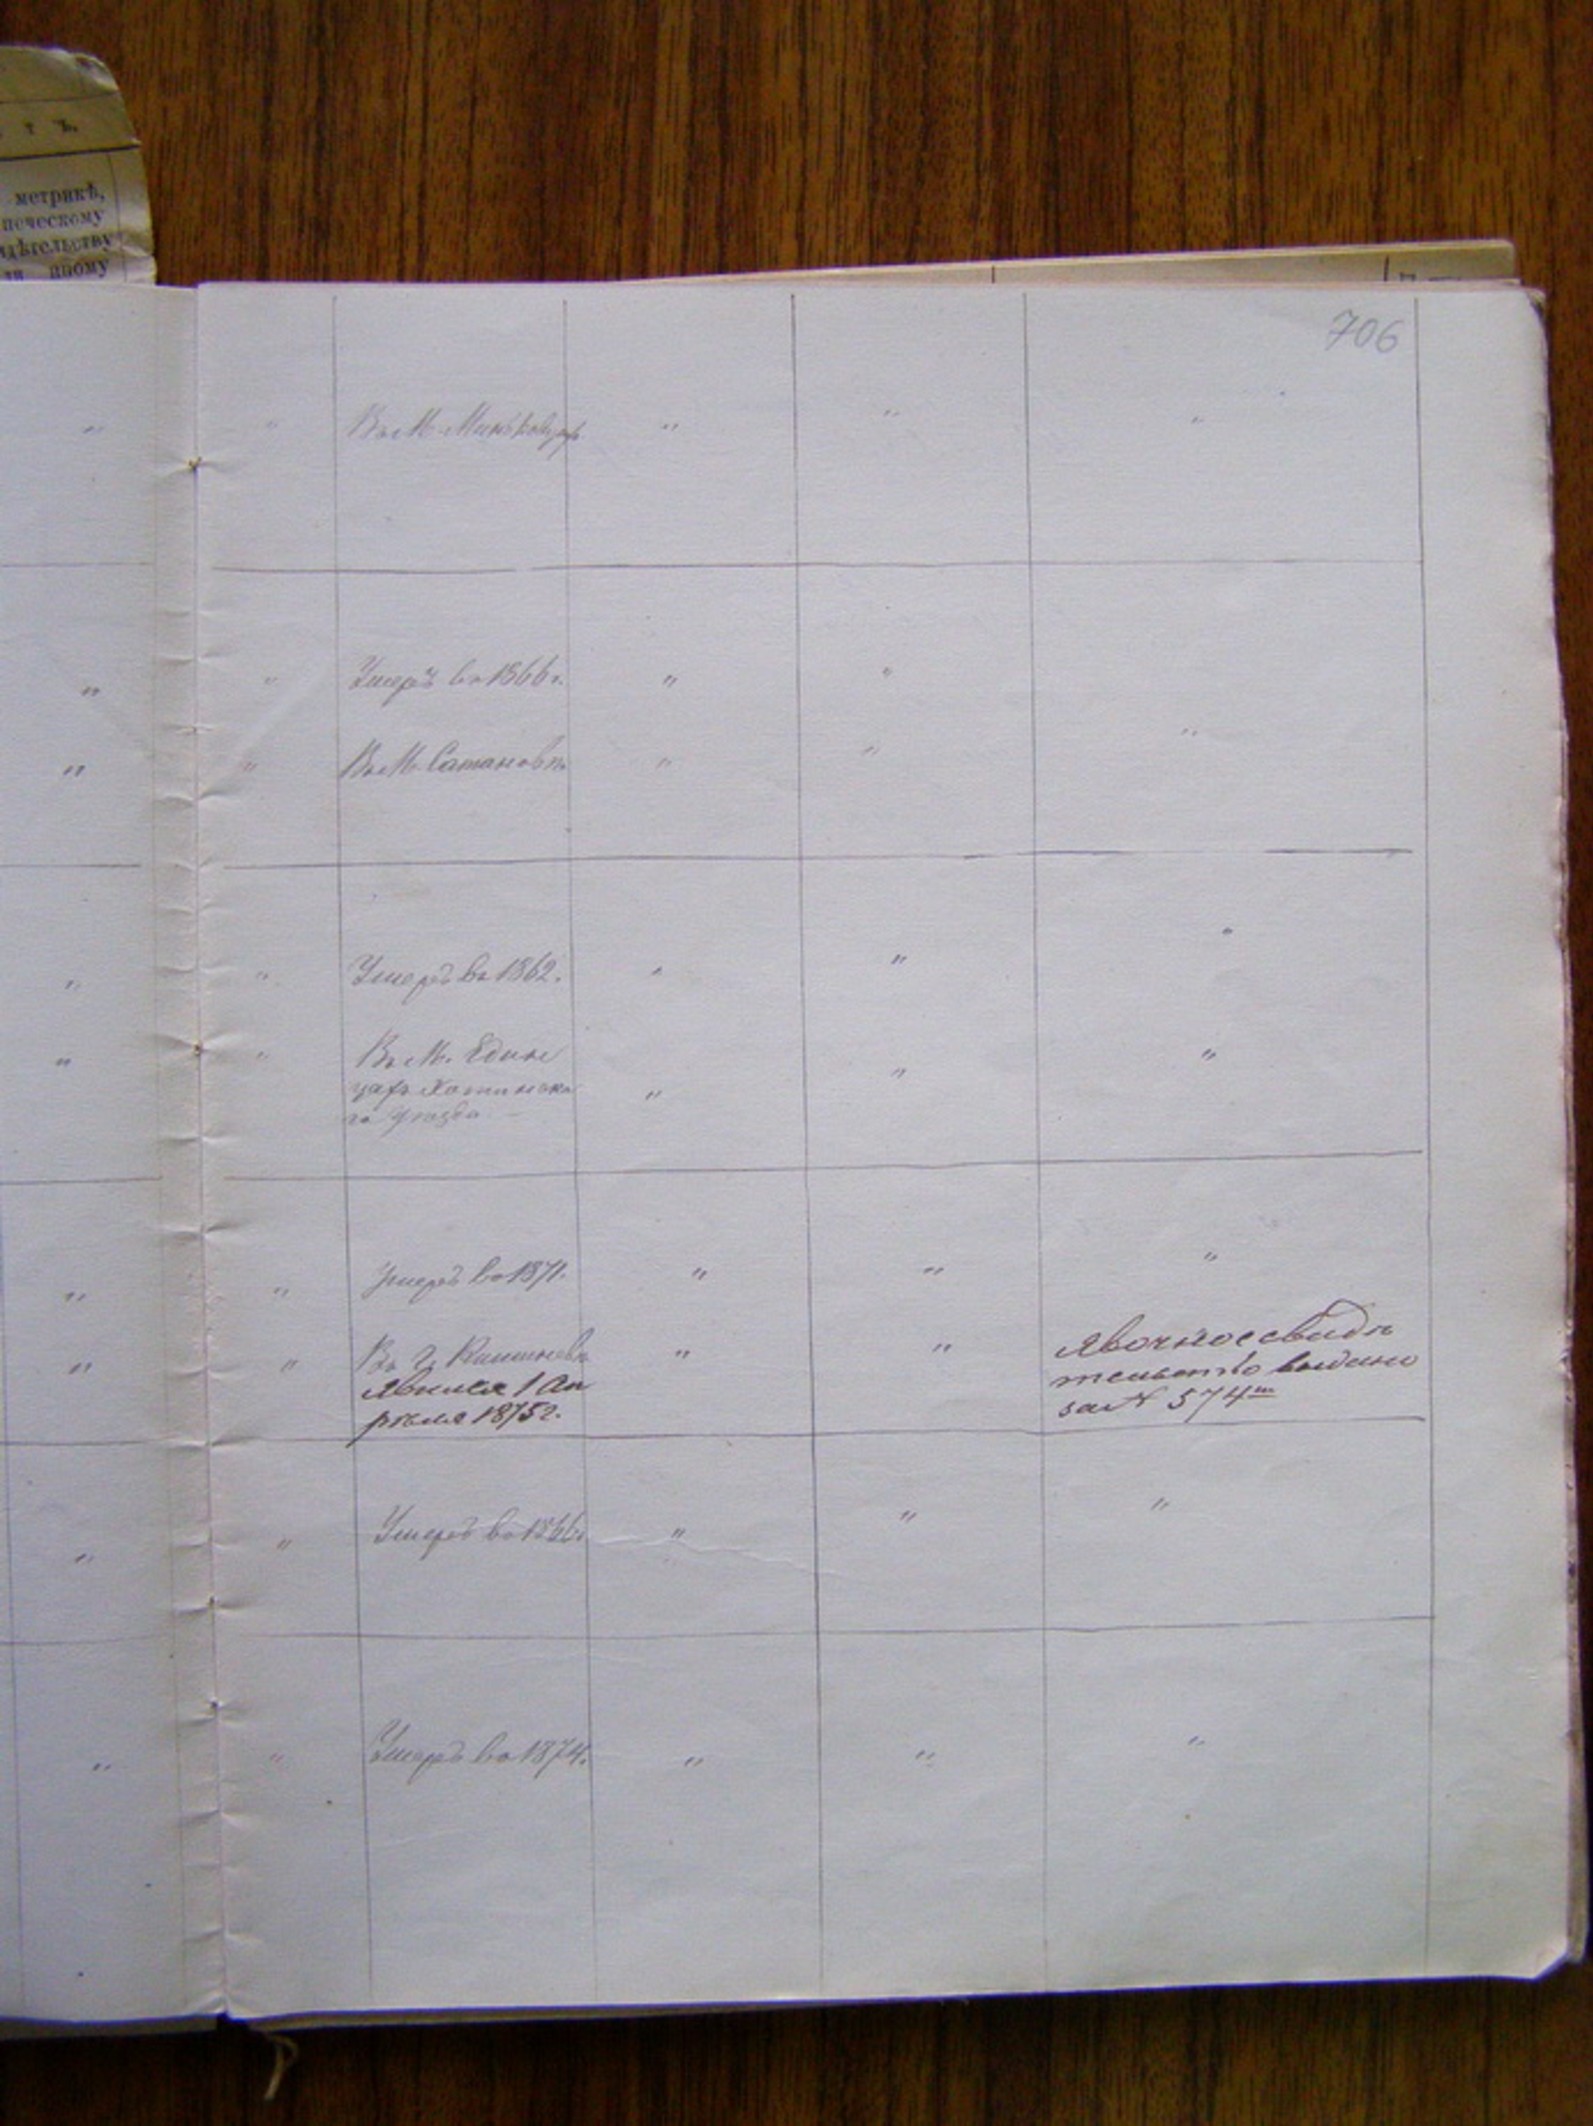 т ъ.
метрикѣ,
иному
706
" " Въ М. Миньковцахъ " " "
" " Умеръ въ 1866 г. " "
" " Въ М. Сатановѣ " " "
" " Умеръ въ 1862. " " "
" " Въ М. Един
цахъ Хотинска
го уѣзда " " "
" " Умеръ въ 1871. " " "
" " Въ г. Кишиневѣ " "
явился 1 Ап
рѣля 1875 г.
Явочное свидѣ
тельство выдано
за № 574
" " Умеръ въ 1866 г. " " "
" " Умеръ въ 1874. " " "